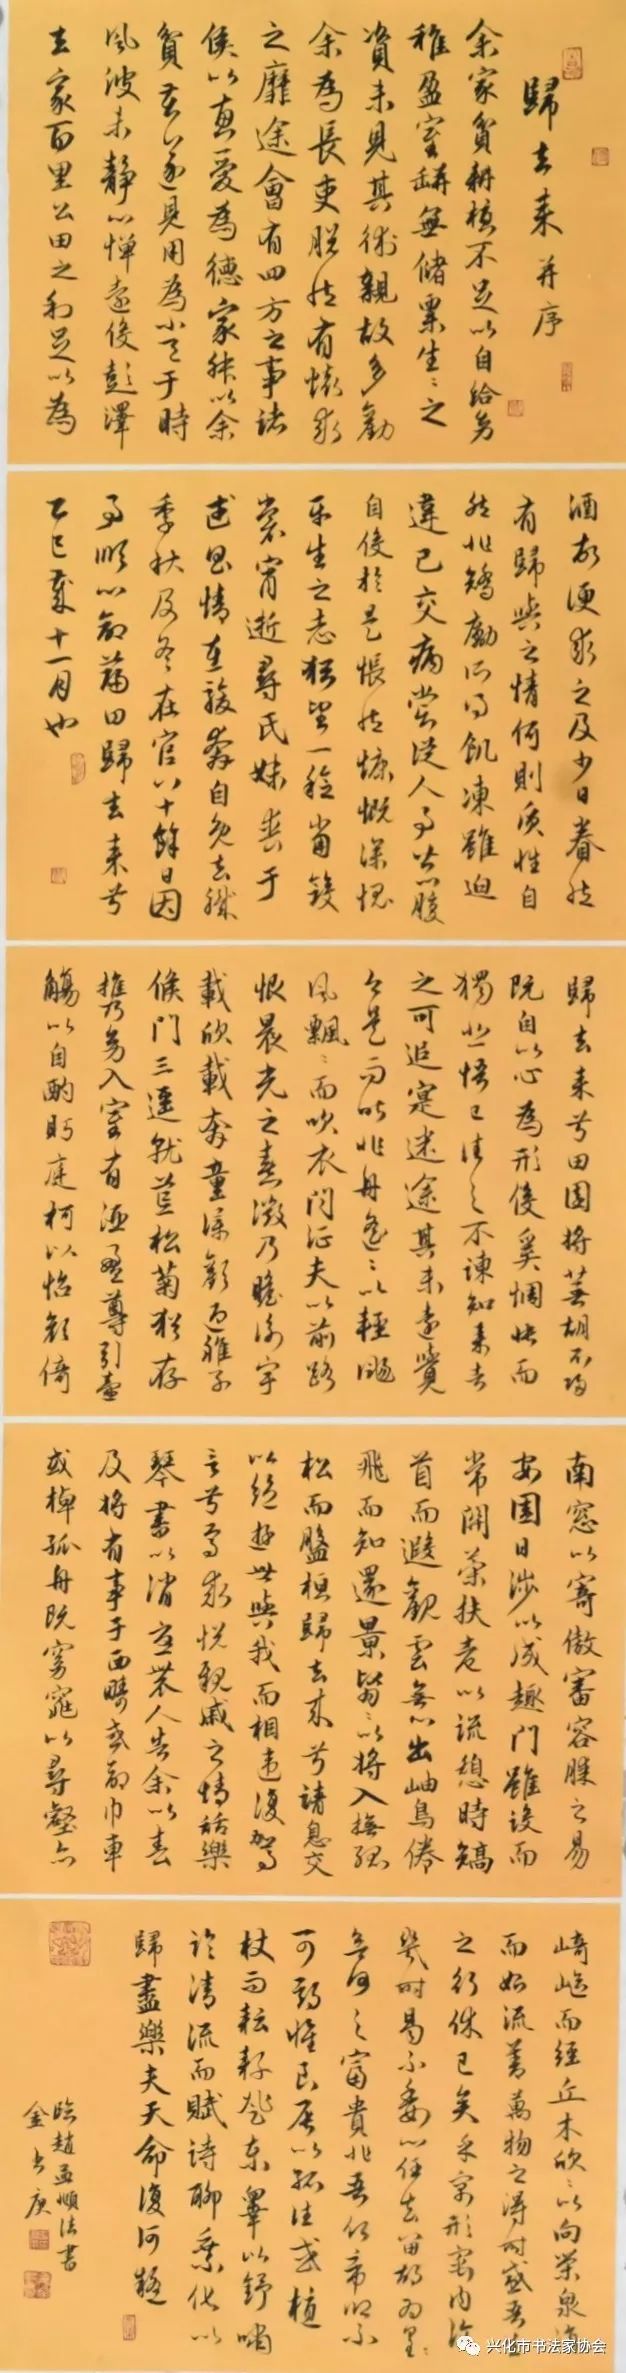 歸去來并序
余家貧耕植不足以自給幼
稚盈室缾無儲粟生〻之
資未見其術親故多勸
余為長吏脫然有懷求
之靡途會有四方之事諸
侯以惠愛為德家叔以余
貧苦遂見用為小邑于時
風波未靜心憚遠役彭澤
去家百里公田之利足以為
酒故便求之及少日眷然
有歸與之情何則質性自
然非矯勵所得飢凍雖迫
違己交病嘗從人事皆口腹
自役於是悵然慷慨深愧
平生之志猶望一稔當斂
裳宵逝尋氏妹喪于
武昌情在駿奔自免去職
季秋及冬在官八十餘日因
事順心命篇曰歸去來兮
乙巳歲十一月也
歸去來兮田園將蕪胡不歸
既自以心為形役奚惆悵而
獨悲悟已往之不諫知來者
之可追寔迷途其未遠覺
今是而昨非舟遙〻以輕颺
風飄〻而吹衣問征夫以前路
恨晨光之熹微乃瞻衡宇
載欣載奔童僕歡迎稚子
候門三逕就荒松菊猶存
攜幼入室有酒盈尊引壺
觴以自酌眄庭柯以怡顏倚
南窓以寄傲審容膝之易
安園日涉以成趣門雖設而
常關策扶老以流憩時矯
首而遐觀雲無心出岫鳥倦
飛而知還景翳〻以將入撫孤
松而盤桓歸去來兮請息交
以絕遊世與我而相違復駕
言兮焉求悅親戚之情話樂
琴書以消憂農人告余以春
及將有事于西疇或命巾車
或棹孤舟既窈窕以尋壑亦
崎嶇而經丘木欣〻以向榮泉涓〻
而始流善萬物之得時感吾生
之行休已矣乎寓形宇內復
幾時曷不委心任去留胡為遑〻
兮何之富貴非吾願帝鄉不
可期懷良辰以孤往或植
杖而耘耔登東皋以舒嘯
臨清流而賦詩聊乘化以
歸盡樂夫天命復何疑
臨趙孟頫法書
兴化市书法家协会